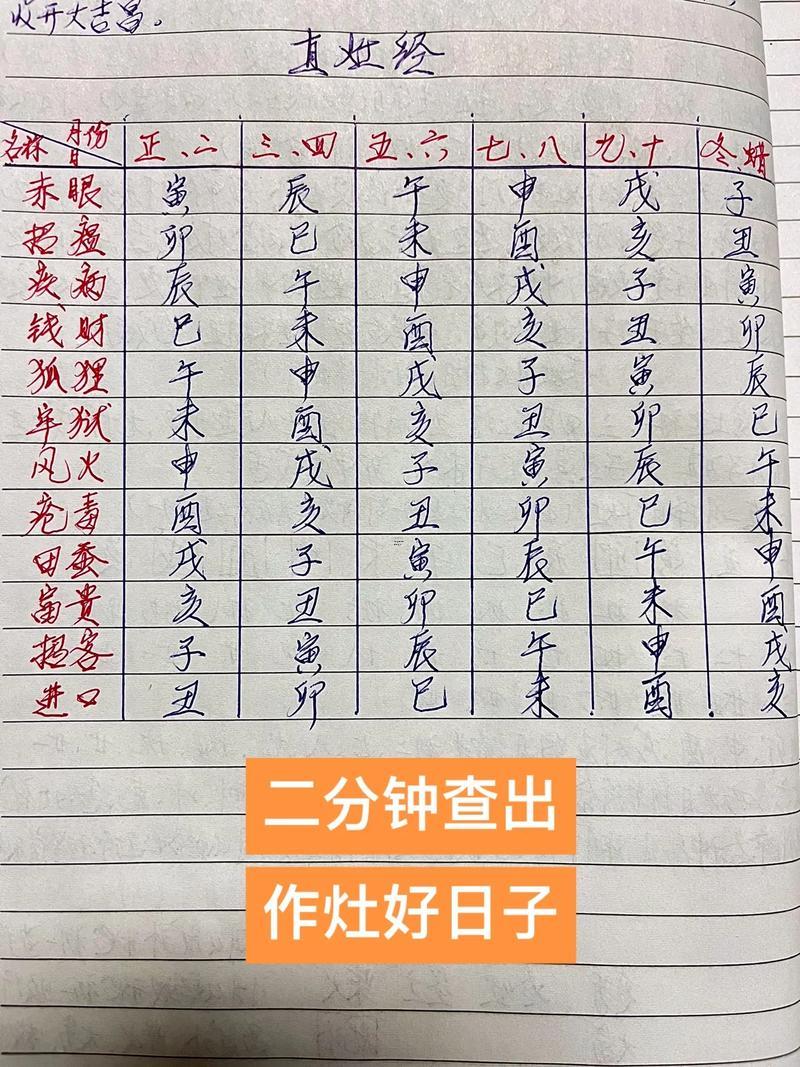 收开大吉昌。
真灶经
名称 日 月份 正、二 三、四 五、六 七、八 九、十 冬、蜡
赤眼 寅 辰 午 申 戌 子
招瘟 卯 巳 未 酉 亥 丑
疾病 辰 午 申 戌 子 寅
钱财 巳 未 酉 亥 丑 卯
狐狸 午 申 戌 子 寅 辰
牢狱 未 酉 亥 丑 卯 巳
风火 申 戌 子 寅 辰 午
疮毒 酉 亥 丑 卯 巳 未
田蚕 戌 子 寅 辰 午 申
富贵 亥 丑 卯 巳 未 酉
招客 子 寅 辰 午 申 戌
进口 丑 卯 巳 未 酉 亥
二分钟查出
作灶好日子